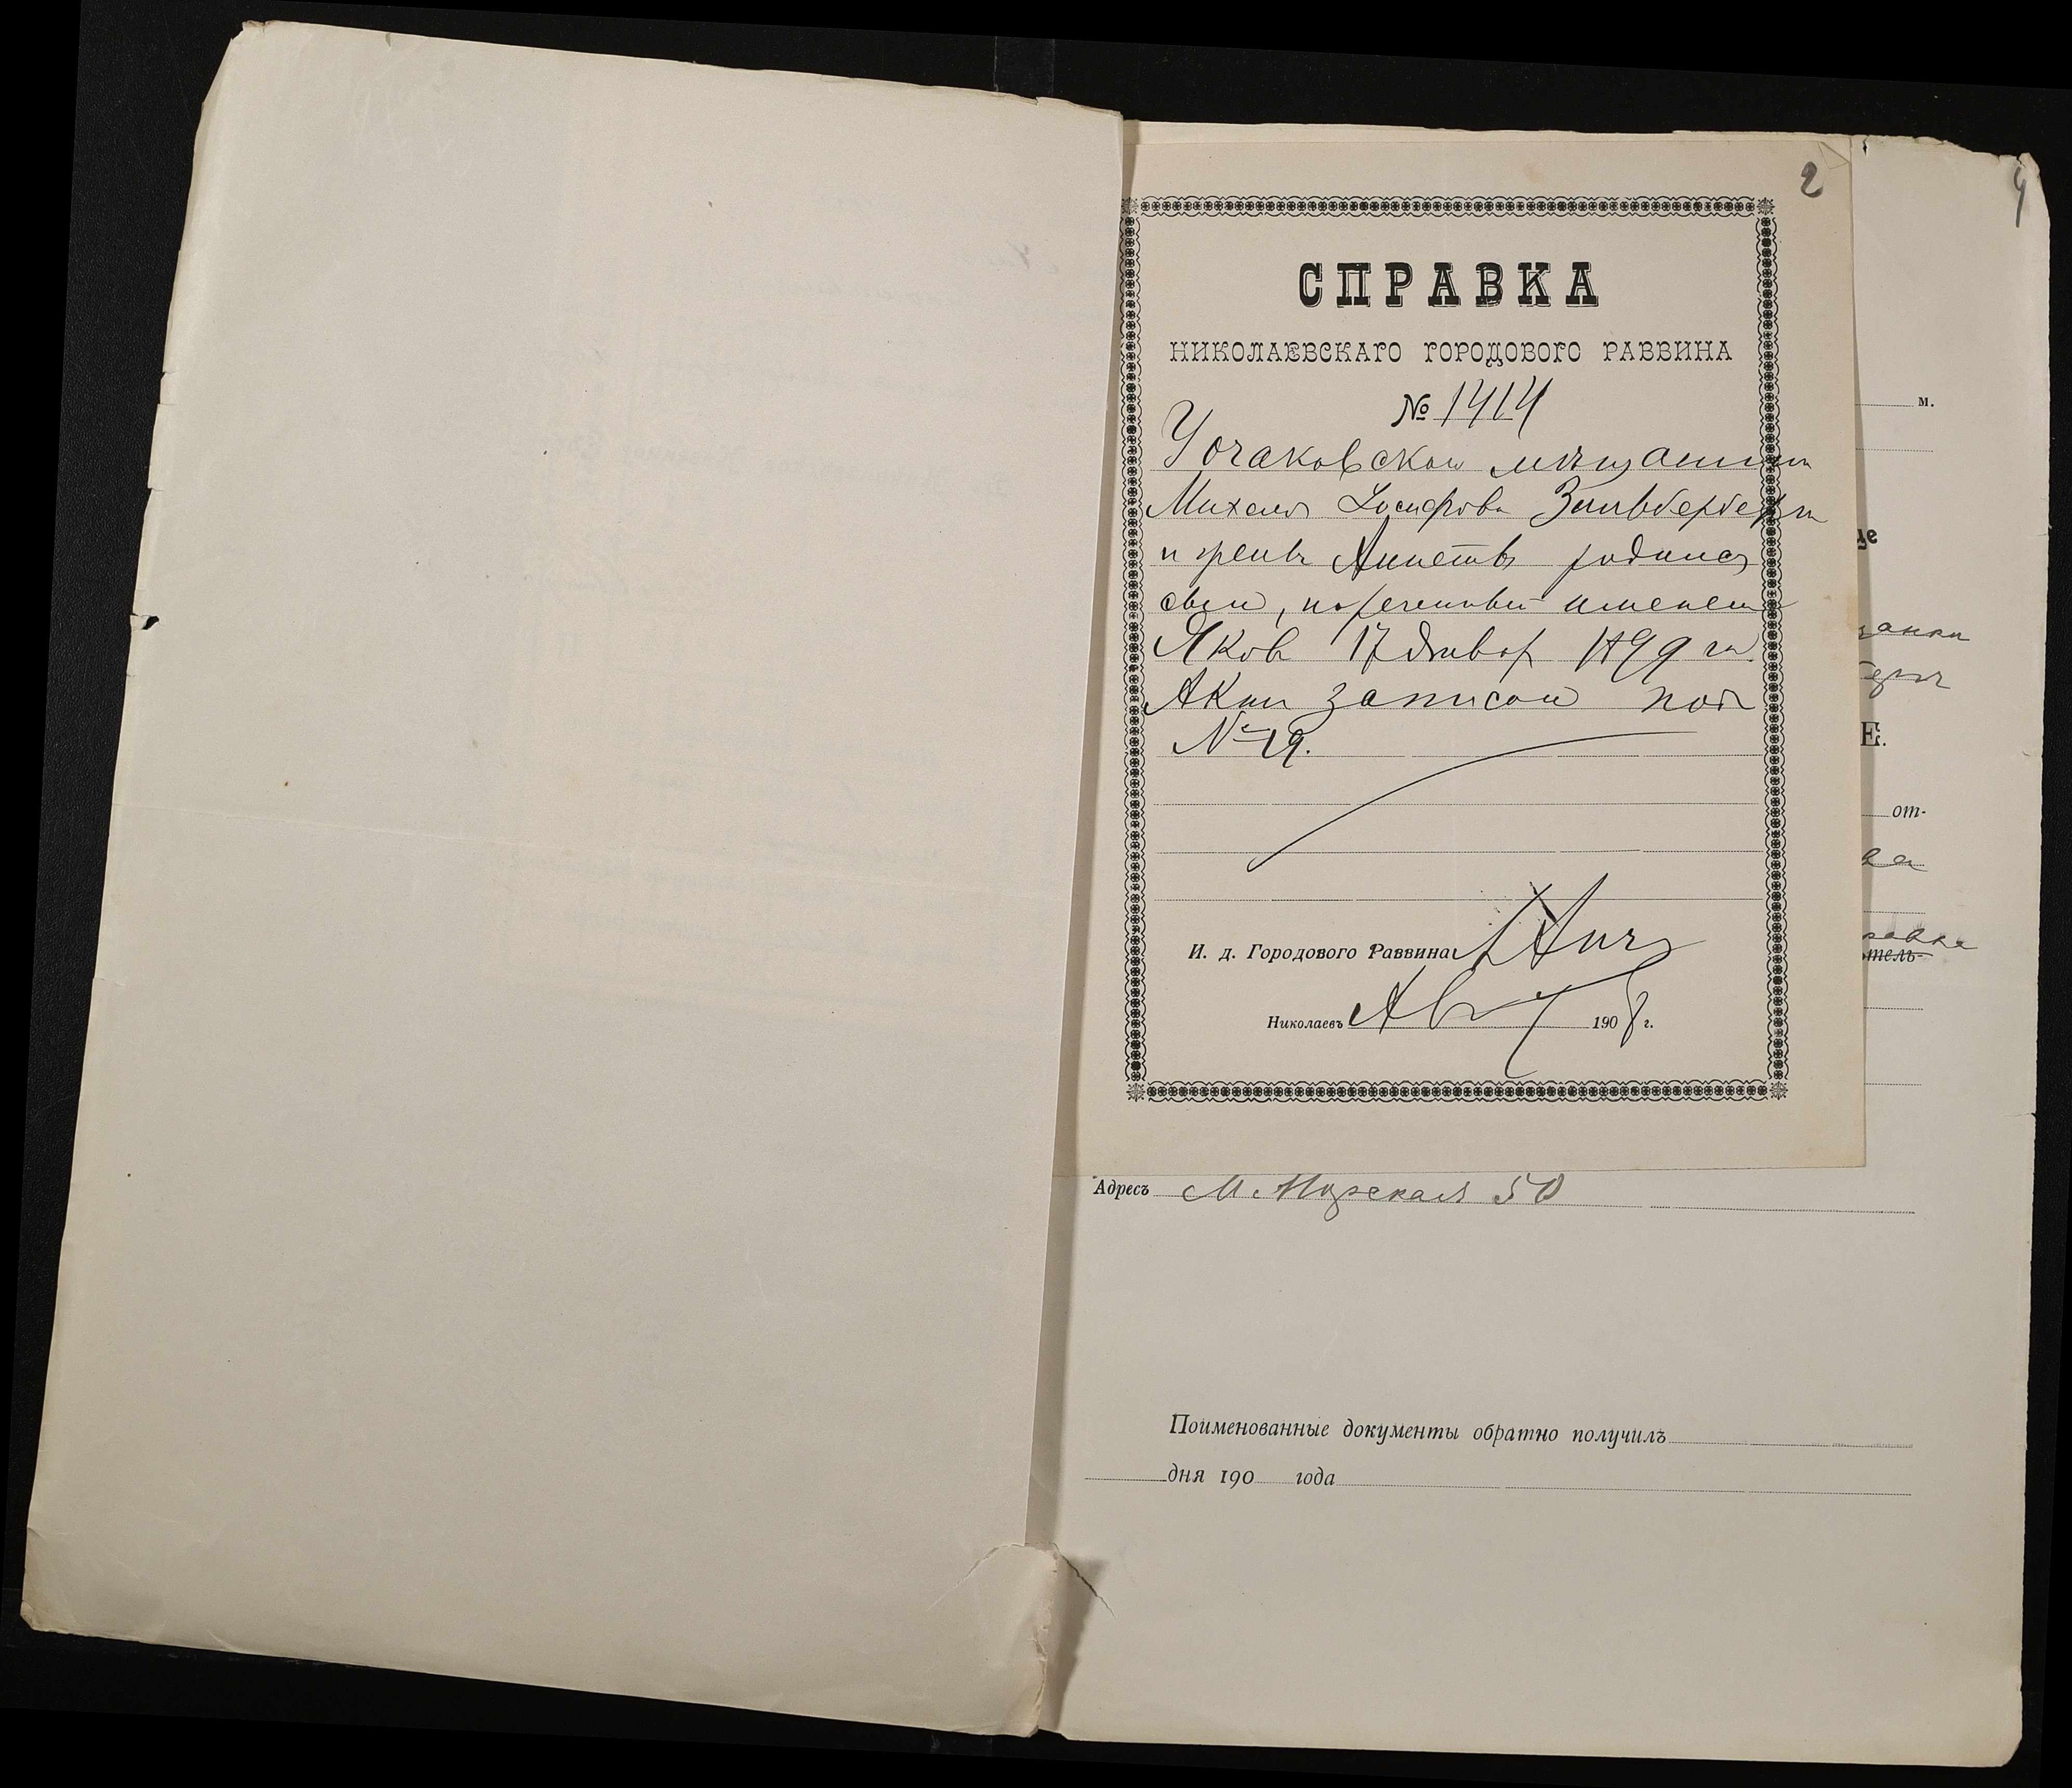 2
4
СПРАВКА
НИКОЛАЕВСКАГО ГОРОДОВОГО РАВВИНА
№ 1414
У очаковскаго мѣщанина
Михеля Іосифова Зильберберга
и жены Аннеты родился
сын, нареченный именем
Яков 17 Январ 1899 г.
Акт записан под
№ 19.
И. д. Городового Раввина
Николаевъ Авг 1908 г.
м.
це
Е.
от-
ва
тель-
Адресъ М. Морская 50
Поименованные документы обратно получилъ
дня 190 года